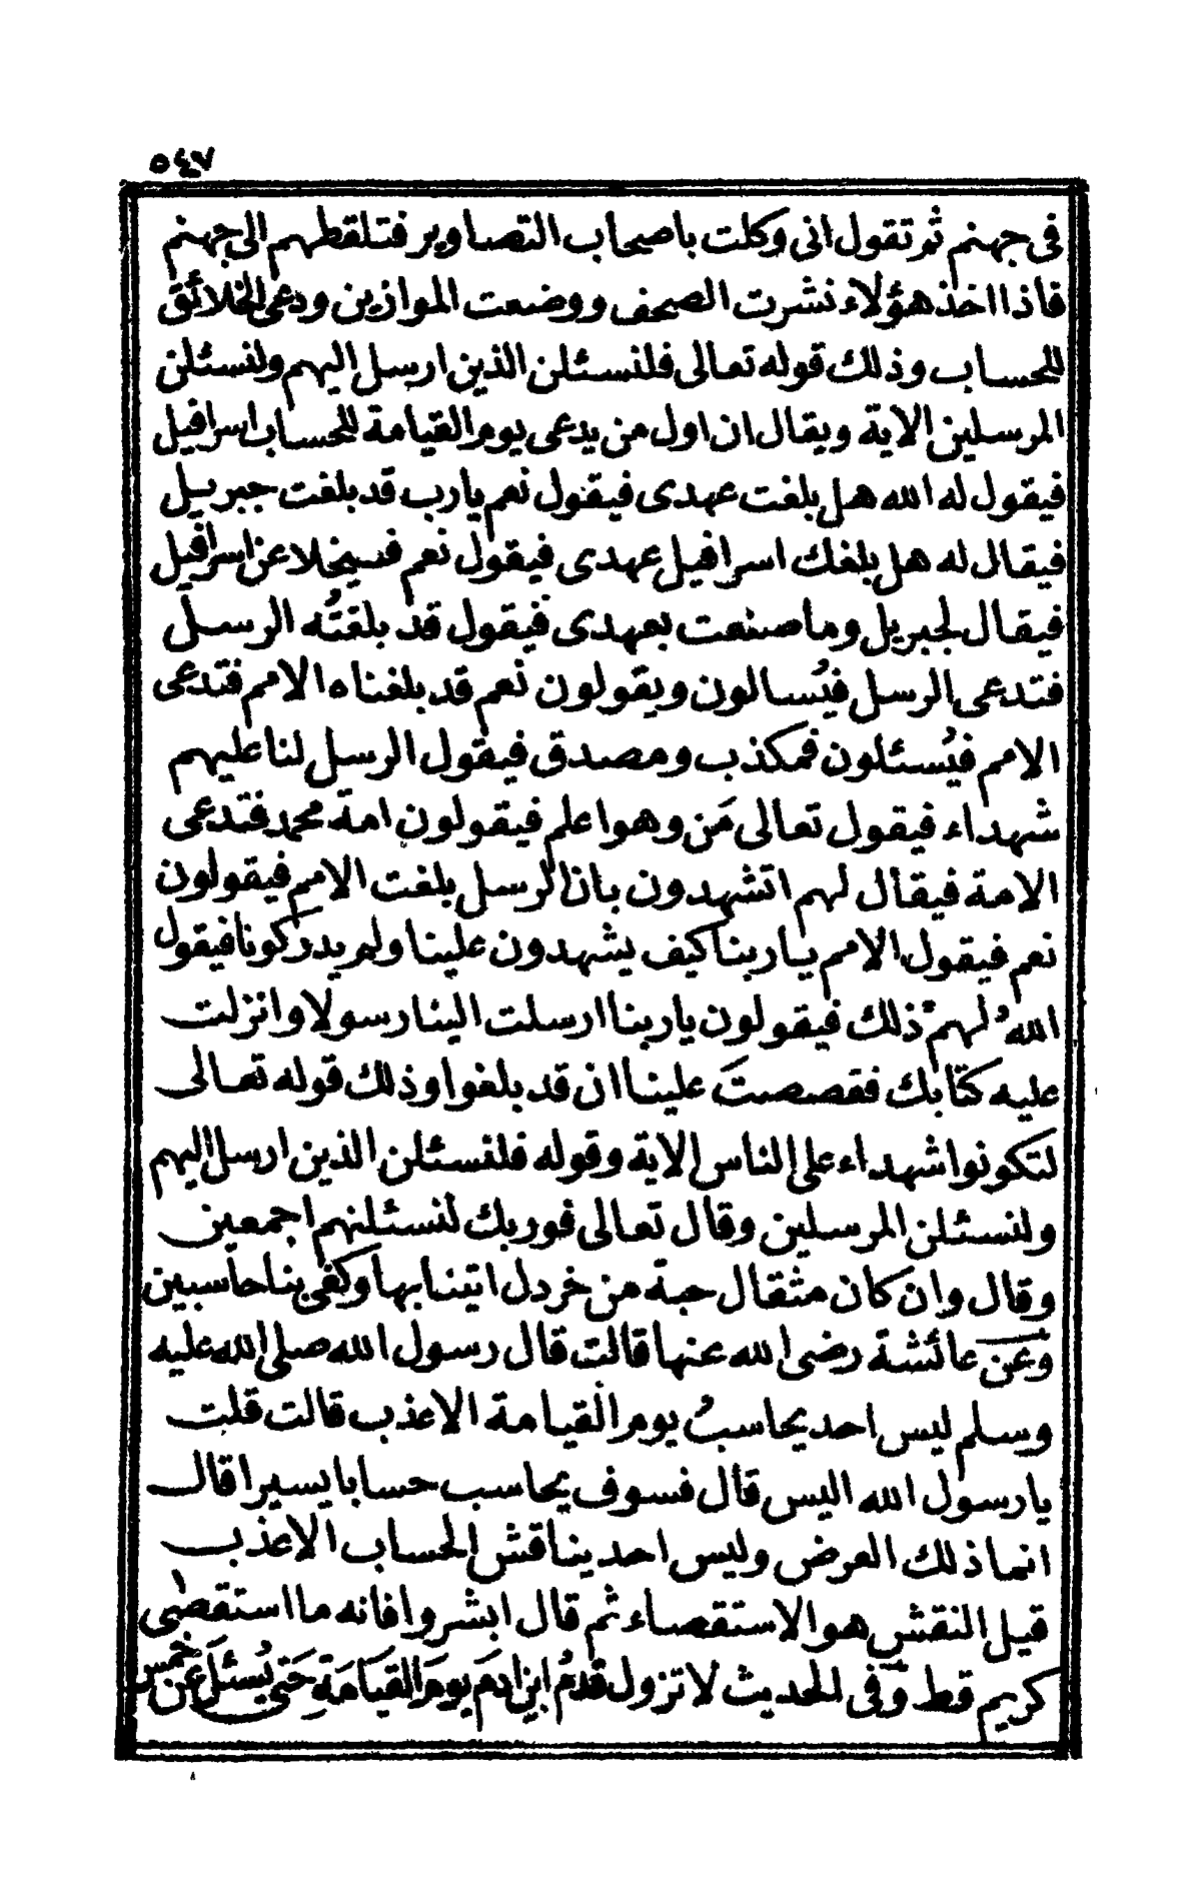 ٥٤٧
فى جهنم ثم تقول انى وكلت باصحاب التصاوير فتلقطهم الى جهنم
فاذا اخذ هؤلاء نشرت الصحف ووضعت الموازين ودعى الخلائق
للحساب وذلك قوله تعالى فلنسئلن الذين ارسل اليهم ولنسئلن
المرسلين الاية ويقال ان اول من يدعى يوم القيامة للحساب اسرافيل
فيقول له الله هل بلغت عهدى فيقول نعم يارب قد بلغت جبريل
فيقال له هل بلغك اسرافيل عهدى فيقول نعم فيخلا عن اسرافيل
فيقال لجبريل وما صنعت بعهدى فيقول قد بلغتُه الرسل
فتدعى الرسل فيُسالون ويقولون نعم قد بلغناه الامم فتدعى
الامم فيُسئلون فمكذب ومصدق فيقول الرسل لنا عليهم
شهداء فيقول تعالى مَن وهو اعلم فيقولون امة محمد فتدعى
الامة فيقال لهم اتشهدون بان الرسل بلغت الامم فيقولون
نعم فيقول الامم يا ربنا كيف يشهدون علينا ولم يدركونا فيقول
اللهُ لهم ذلك فيقولون يا ربنا ارسلت الينا رسولا وانزلت
عليه كتابك فقصصتَ علينا ان قد بلغوا وذلك قوله تعالى
لتكونوا شهداء على الناس الاية وقوله فلنسئلن الذين ارسل اليهم
ولنسئلن المرسلين وقال تعالى فوربك لنسئلنهم اجمعين
وقال وان كان مثقال حبة من خردل اتينا بها وكفى بنا حاسبين
وعن عائشة رضى الله عنها قالت قال رسول الله صلى الله عليه
وسلم ليس احد يحاسبُ يوم القيامة الا عذب قالت قلت
يا رسول الله اليس قال فسوف يحاسب حسابا يسيرا قال
انما ذلك العرض وليس احد يناقش الحساب الا عذب
قيل النقش هو الاستقصاء ثم قال ابشروا فانه ما استقصى
كريم قط وفى الحديث لا تزول قدمُ ابن ادمَ يومَ القيامَةِ حَتى يُسئلَ عن خمس